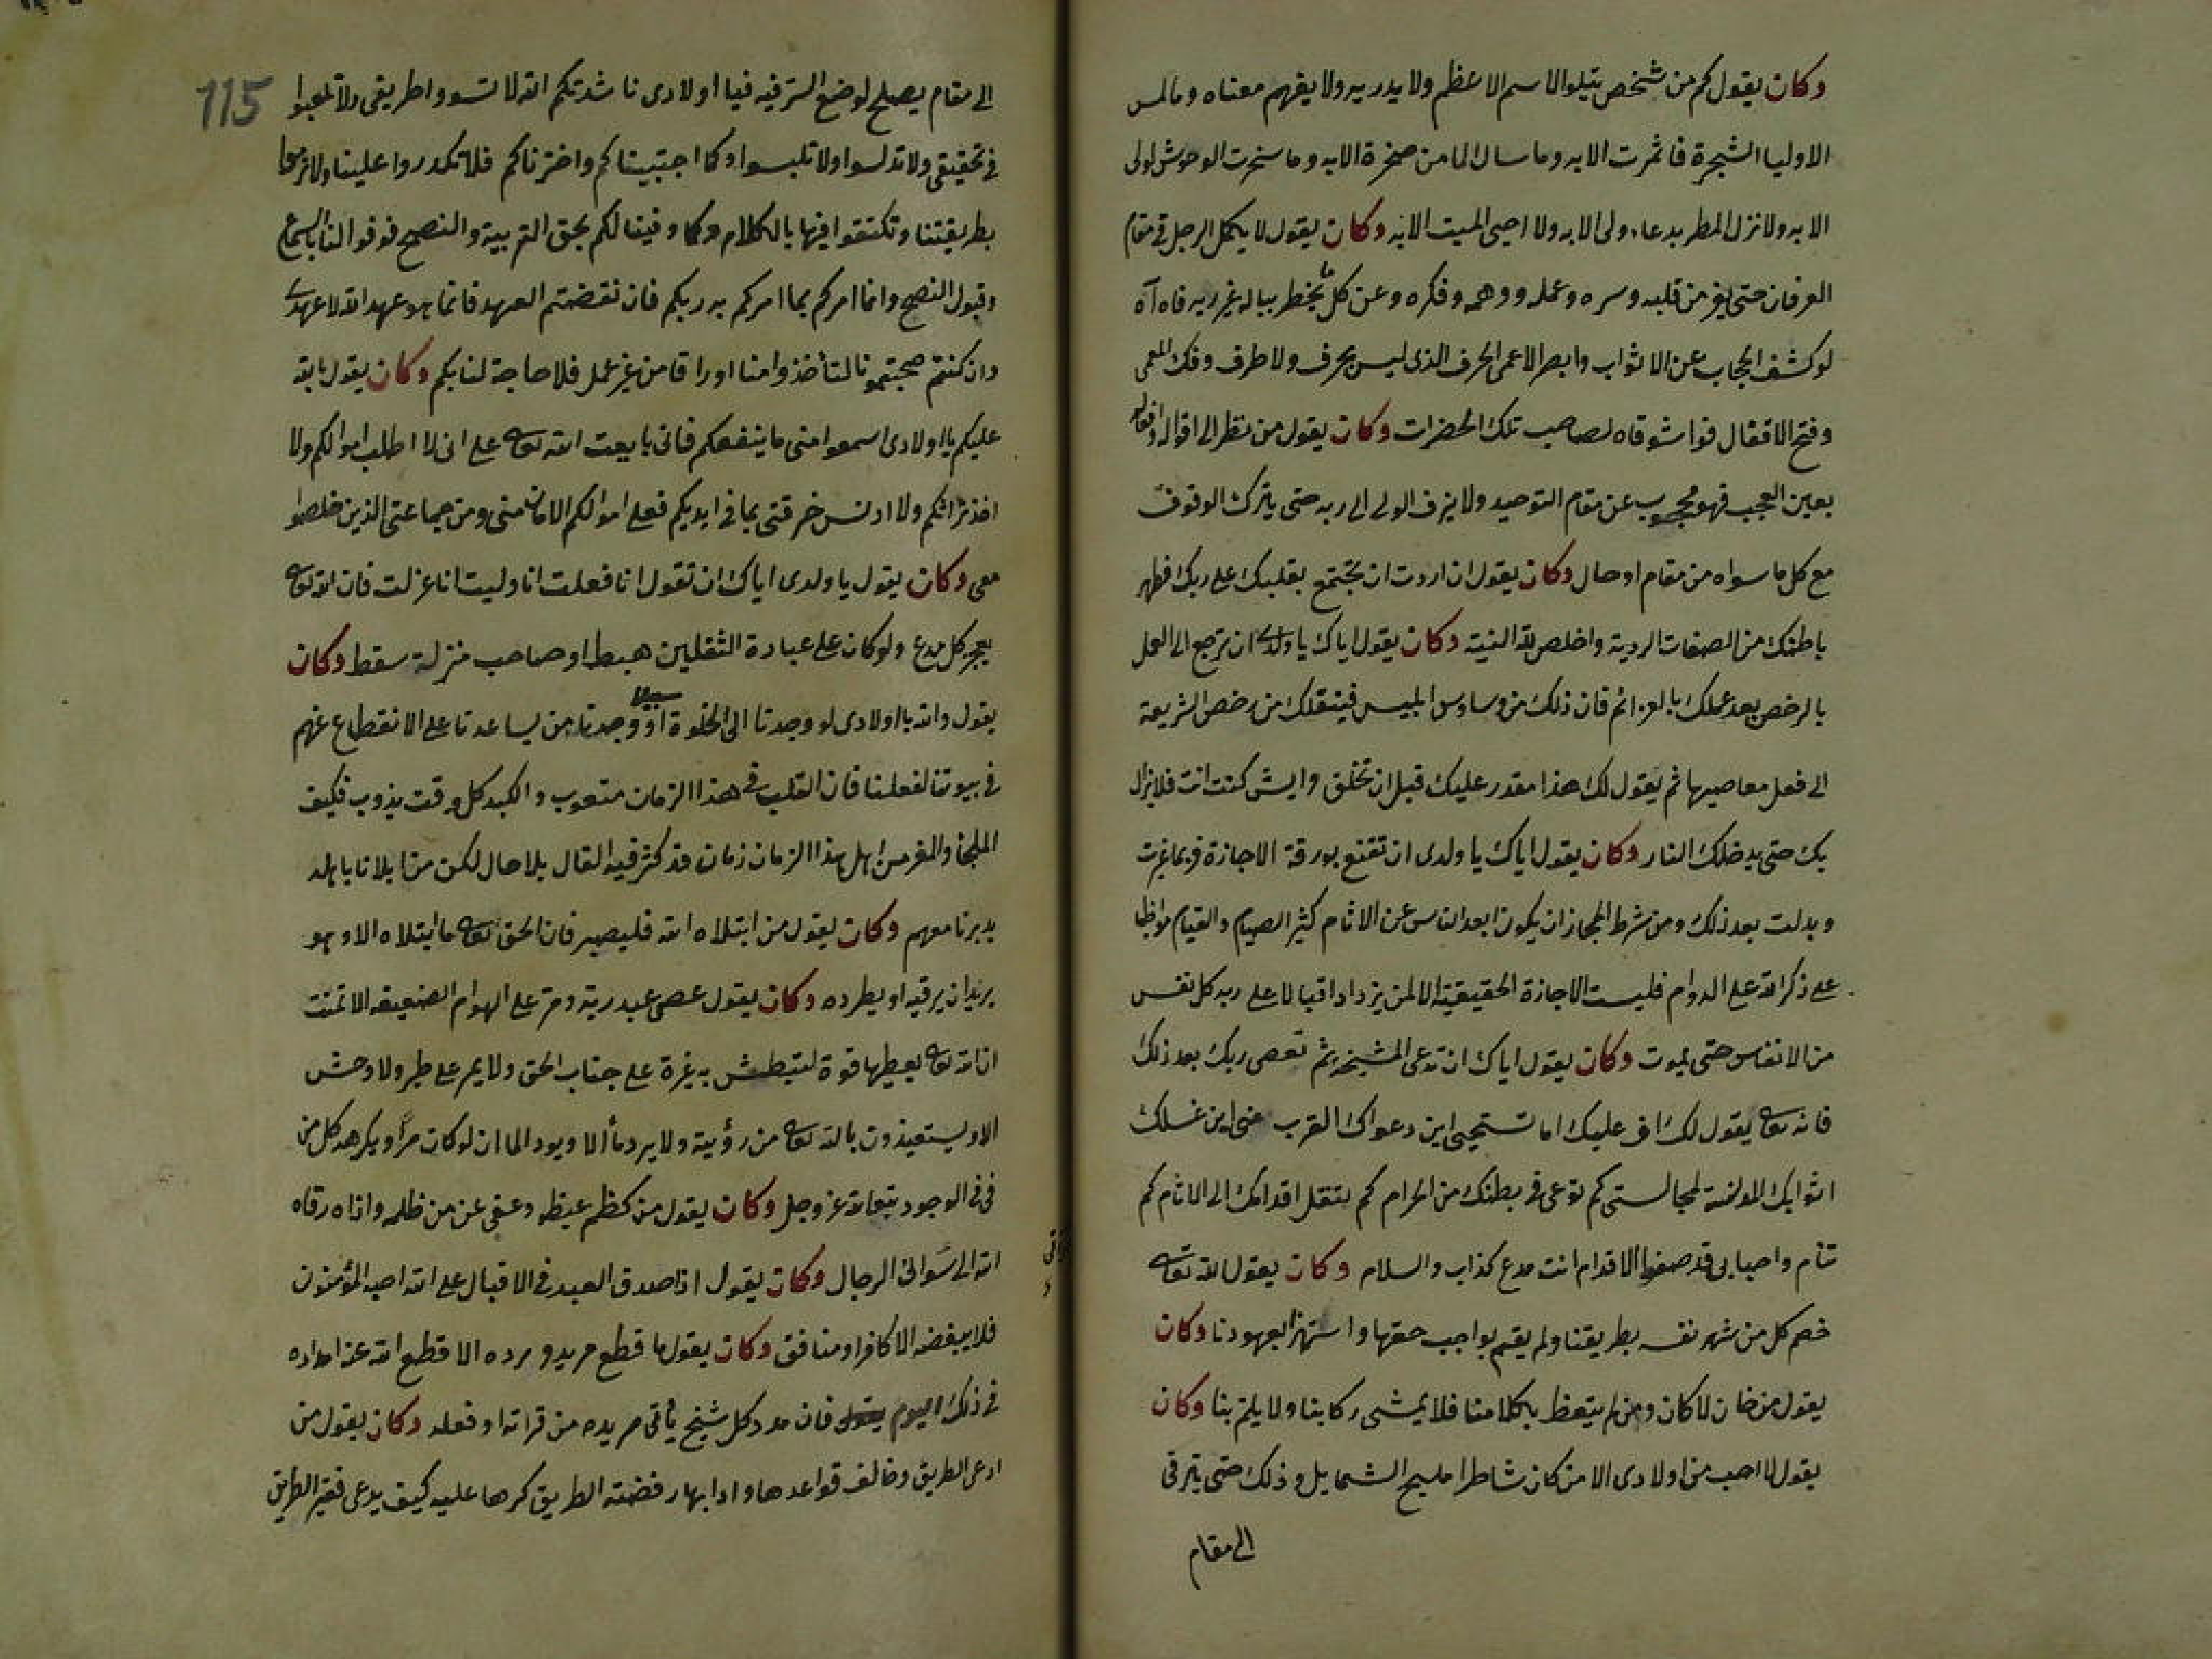 وكان يقول كم من شخص يتلو الاسم الاعظم ولا يدريه ولا يفهم معناه وما لمس
الاوليا الشجرة فاثمرت الا به وما سال الما من صخرة الا به وما سخرت الوحوش لولى
الا به ولا نزل المطر بدعاء ولى الا به ولا احيى الميت الا به وكان يقول لا يكمل الرجل فى مقام
العرفان حتى يفر من قلبه وسره وعمله ووهمه وفكره وعن كل ما يخطر بباله غير ربه فاه آه
لو كشف الحجاب عن الاثواب وابصر الاعمى الحرف الذى ليس بحرف ولا ظرف وفك المعمى
وفتح الاقفال فواشوقاه لصاحب تلك الحضرات وكان يقول من نظر الى اقواله وافعاله
بعين العجب فهو محجوب عن مقام التوحيد ولا يزف الولى الى ربه حتى يترك الوقوف
مع كل ما سواه من مقام او حال وكان يقول ان اردت ان تجتمع بقلبك على ربك فطهر
باطنك من الصفات الردية واخلص لله النية وكان يقول اياك يا ولدى ان ترجع الى العمل
بالرخص بعد عملك بالعزائم فان ذلك من وساوس ابليس فينقلك من رخص الشريعة
الى فعل معاصيها ثم يقول لك هذا مقدر عليك قبل ان تخلق وايش كنت انت فلا يزال
بك حتى يدخلك النار وكان يقول اياك يا ولدى ان تقنع بورقة الاجازة فربما غيرت
وبدلت بعد ذلك ومن شرط المجاز ان يكون ابعد الناس عن الاثام كثير الصيام والقيام مواظبا
على ذكر الله على الدوام فليست الاجازة الحقيقية الا لمن يزداد اقبالا على ربه كل نفس
من الانفاس حتى يموت وكان يقول اياك ان تدعى المشيخة ثم تعصى ربك بعد ذلك
فانه تعالى يقول لك اف عليك اما تستحيى اين دعواك القرب منى اين غسلك
اثوابك المدنسة لمجالستى كم توعى فى بطنك من الحرام كم تنقل اقدامك الى الاثام كم
تنام واحبابى قد صفوا الاقدام انت مدع كذاب والسلام وكان يقول الله تعالى
خصم كل من شهر نفسه بطريقنا ولم يقم بواجب حقها واستهزا بعهودنا وكان
يقول من خان لا كان ومن لم يتعظ بكلامنا فلا يمشى ركابنا ولا يلم بنا وكان
يقول لا احب من اولادى الا من كان شاطرا مليح الشمايل وذلك حتى يترقى
الى مقام
115
الى مقام يصلح لوضع السر فيه فيا اولادى ناشدتكم الله لا تسووا طريقى ولا تلعبوا
فى تحقيقى ولا تدلسوا ولا تلبسوا وكما اجتبيناكم واخترناكم فلا تكدروا علينا ولا ترموا
بطريقتنا وتكتفوا فيها بالكلام وكما وفينا لكم بحق التربية والنصح فوفوا لنا بالسماع
وقبول النصح وانما امركم بما امركم به ربكم فان نقضتم العهد فانما هو عهد الله لا عهدى
وان كنتم صحبتمونا لتأخذوا منا اوراقا من غير عمل فلا حاجة لنا بكم وكان يقول بالله
عليكم يا اولادى اسمعوا منى ما ينفعكم فانى بايعت الله تعالى على انى لا اطلب اموالكم ولا
اخذ تراثكم ولا ادنس خرقتى بما فى ايديكم فعلى اموالكم الامان منى ومن جماعتى الذين خلصوا
معى وكان يقول يا ولدى اياك ان تقول انا فعلت انا وليت انا عزلت فان الله تعالى
يعجز كل مدع ولو كان على عبادة الثقلين هبط او صاحب منزلة سقط وكان
يقول والله يا اولادى لو وجدنا الى الخلوة سبيلا او وجدنا من يساعدنا على الانقطاع عنهم
فى بيوتنا لفعلنا فان القلب فى هذا الزمان متعوب والكبد كل وقت يذوب فكيف
الملجأ والمفر من اهل هذا الزمان زمان قد كثر فيه القال بلا حال لكن من ابلانا باهله
يدبرنا معهم وكان يقول من ابتلاه الله فليصبر فان الحق تعالى ما ابتلاه الا وهو
يريد ان يرقيه او يطرده وكان يقول ما عصى عبد ربه ومر على الهوام الضعيفة الا تمنت
ان الله تعالى يعطيها قوة لتبطش به غيرة على جناب الحق ولا يمر على طير ولا وحش
الا ويستعيذون بالله تعالى من رؤيته ولا يرد مأ الا ويود الما ان لو كان مرا ويكرهه كل من
فى فى الوجود تبعا لله عز وجل وكان يقول من كظم غيظه وعفى عن من ظلمه واذاه رقاه
الله الى سوانى الرجال وكان يقول اذا صدق العبد فى الاقبال على الله احبه المؤمنون
فلا يبغضه الا كافر او منافق وكان يقول ما قطع مريد ورده الا قطع الله عنه امداده
فى ذلك اليوم فان مدد كل شيخ يأتى مريده من قراته او فعله وكان يقول من
ادعى الطريق وخالف قواعدها وادابها رفضته الطريق كرها عليه كيف يدعى فقير الطريق